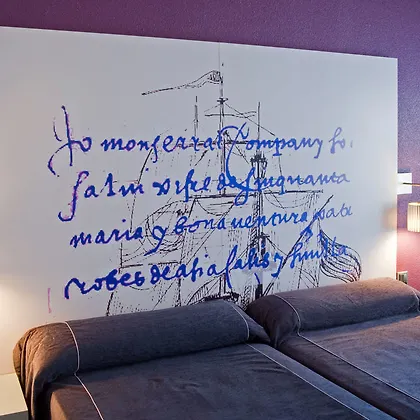 Jo monserrat Company fo
fa tui vifre de sinquanta
maria y bonaventura
robes de asia fatis y